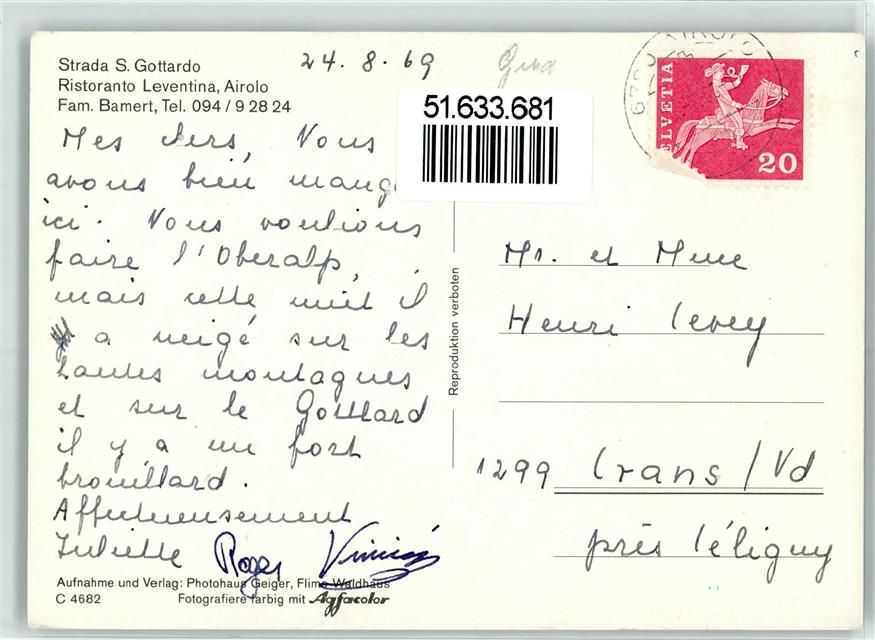 Strada S. Gottardo
Ristoranto Leventina, Airolo
Fam. Bamert, Tel. 094 / 9 28 24
24. 8. 69
51.633.681
HELVETIA
20
Mes chers, Vous
avons bien mang
ici. Nous voulions
faire l'Oberalp,
mais cette nuit il
a neigé sur les
hautes montagnes
et sur le Gotthard
il y a un fort
brouillard.
Affectueusement
Juliette Roger
Reproduktion verboten
Mr. et Mme
Henri
1299 Crans / Vd
près Céligny
Aufnahme und Verlag: Photohaus Geiger, Flims Waldhaus
C 4682 Fotografiere farbig mit Agfacolor